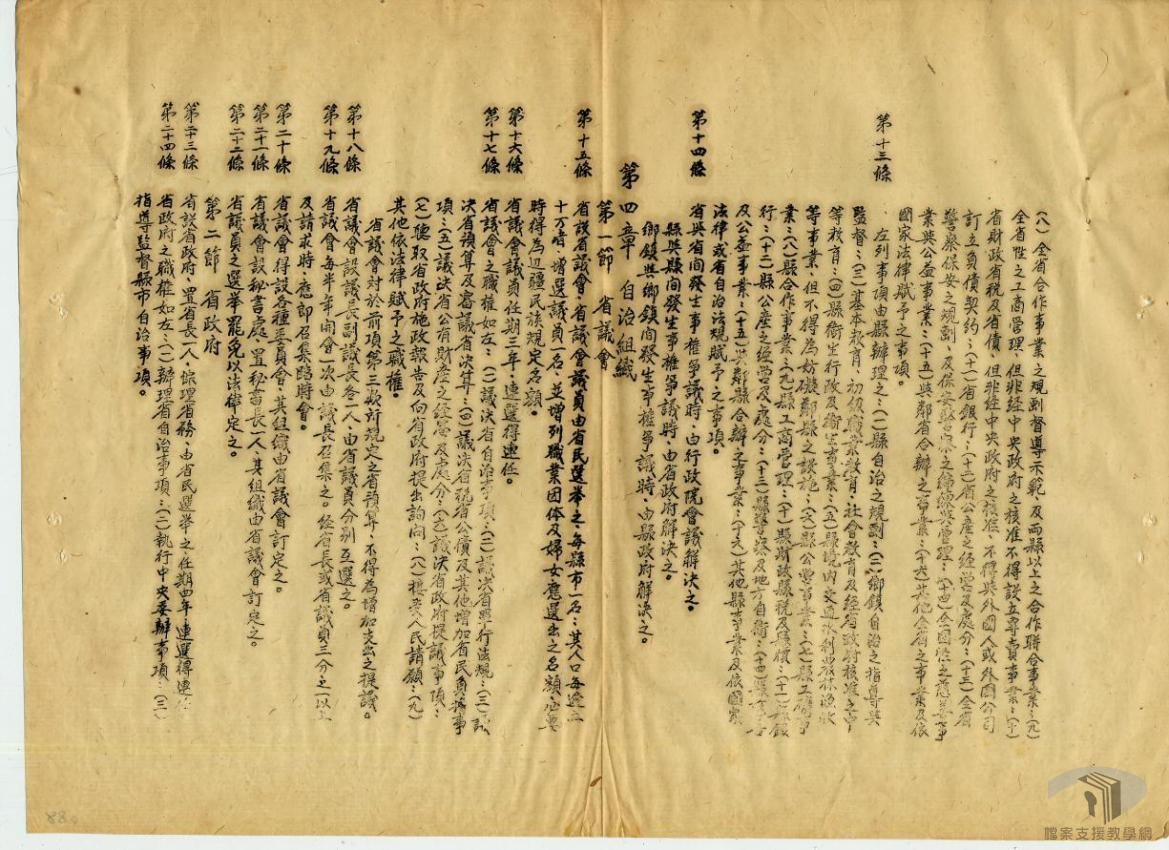 (八)全省合作事業之規劃督導示範及兩縣以上之合作聯合事業:(九)
全省性之工商管理,但非經中央政府之核准不得設立專賣事業:(十)
省財政省税及省債,但非經中央政府之核准,不得與外國人或外國公司
訂立負債契約:(十一)省銀行:(十二)省公產之經營及處分:(十三)全省
警察保安之規劃,及保安警察之編練與管理:(十四)全國性之慈善事
業與公益事業:(十五)與鄰省合辦之事業:(十六)其他全省之事業及依
國家法律賦予之事項。
第十三條 左列事項由縣辦理之:(一)縣自治之規劃:(二)鄉鎮自治之指導與
監督:(三)基本教育,初級職業教育,社會教育及經省政府核准之中
等教育:(四)縣衛生行政及衛生事業:(五)縣境內交通水利農林漁牧
等事業,但不得為妨礙鄰縣之設施:(六)縣公營事業:(七)縣工礦事
業:(八)縣合作事業:(九)縣工商管理:(十)縣財政縣税及縣債:(十一)縣銀
行:(十二)縣公產之經營及處分:(十三)縣警察及地方自衛:(十四)縣慈善
及公益事業:(十五)與鄰縣合辦之事業:(十六)其他縣事業及依國家
法律或省自治法規賦予之事項。
第十四條 省與省間發生事權爭議時,由行政院會議解決之。
縣與縣間發生事權爭議時,由省政府解決之。
鄉鎮與鄉鎮間發生事權爭議時,由縣政府解決之。
第四章 自治組織
第一節 省議會
第十五條 省設省議會,省議會議員由省民選舉之,每縣市一名:其人口每逾二
十万者,增選議員一名,並增列職業團体及婦女應選出之名額,必要
時得為辺疆民族規定名額。
第十六條 省議會議員任期三年,連選得連任。
第十七條 省議會之職權如左:(一)議決省自治事項:(二)議決省單行法規:(三)議
決省預算及審議省決算:(四)議決省税省公債及其他增加省民負擔事
項:(五)議決省公有財產之經營及處分:(六)議決省政府提議事項:
(七)聽取省政府施政報告及向省政府提出詢問:(八)接受人民請願:(九)
其他依法律賦予之職權。
省議會對於前項第三款所規定之省預算,不得為增加支出之提議。
第十八條 省議會設議長副議長各一人,由省議員分別互選之。
第十九條 省議會每半年開會一次由議長召集之。經省長或省議員三分之一以上
及請求時,應即召集臨時會。
第二十條 省議會得設各種委員會,其組織由省議會訂定之。
第二十一條 省議會設秘書處,置秘書長一人,其組織由省議會訂定之。
第二十二條 省議員之選舉罷免以法律定之。
第二節 省政府
第二十三條 省設省政府,置省長一人,綜理省務,由省民選舉之任期四年,連選得連任
第二十四條 省政府之職權如左:(一)辦理省自治事項:(二)執行中央委辦事項:(三)
指導監督縣市自治事項。
88
檔案支援教學網